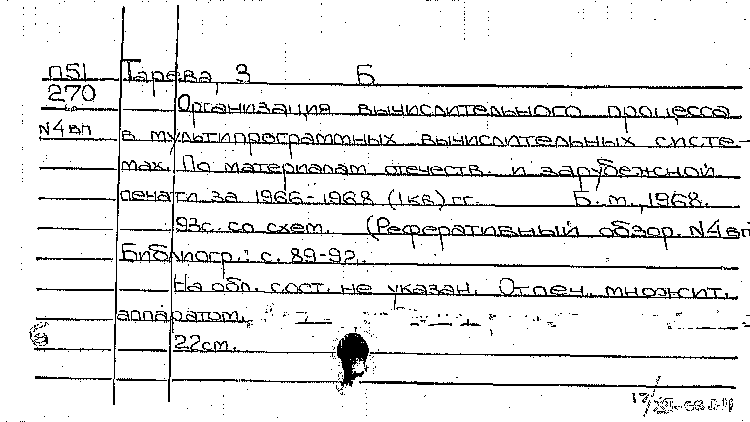 П51 Тарева, З Б
270 Организация вычислительного процесса
N4вп в мультипрограммных вычислительных систе-
мах. По материалам отечеств. и зарубежной
печати за 1966-1968 (1кв) гг. Б.м., 1968.
93с. со схем. (Реферативный обзор. N4вп
Библиогр.: с. 89-92.
На обл. сост. не указан. Отпеч. множит.
аппаратом.
22см.